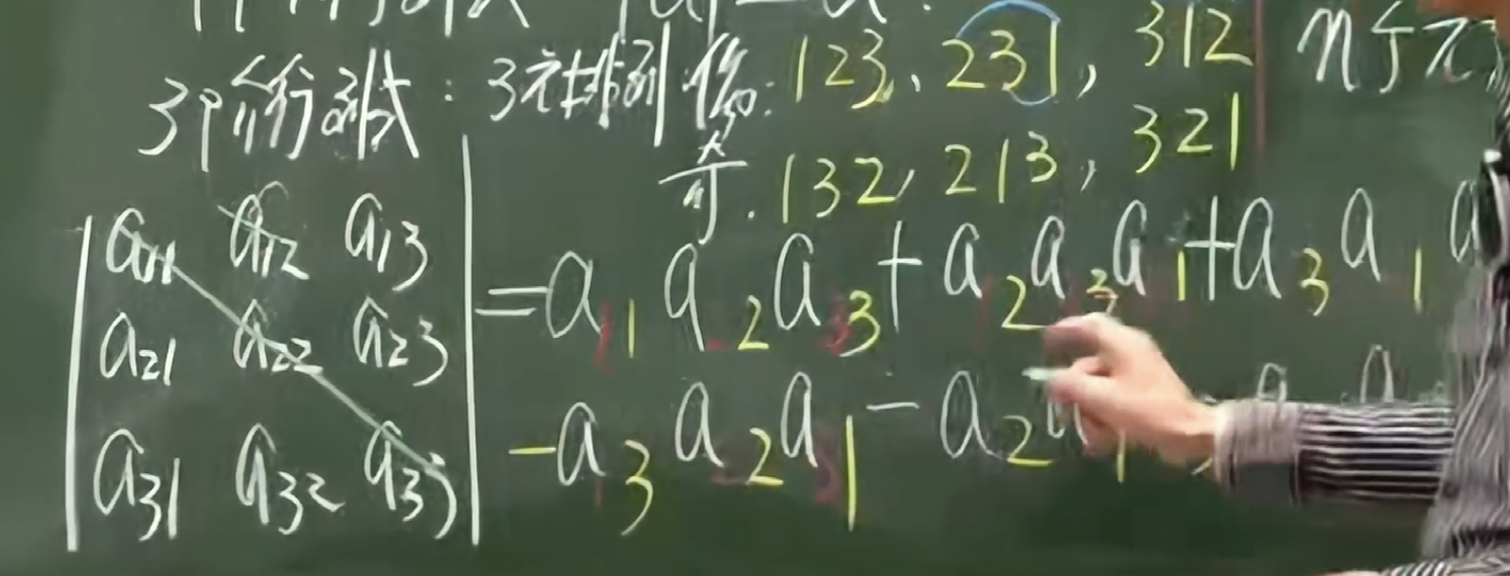 3阶行列式：3元排列 偶：123、231，312 n
奇：132，213，321
a11 a12 a13
a21 a22 a23
a31 a32 a33
=a11a22a33+a12a23a31+a13a21a
-a13a22a31-a12a